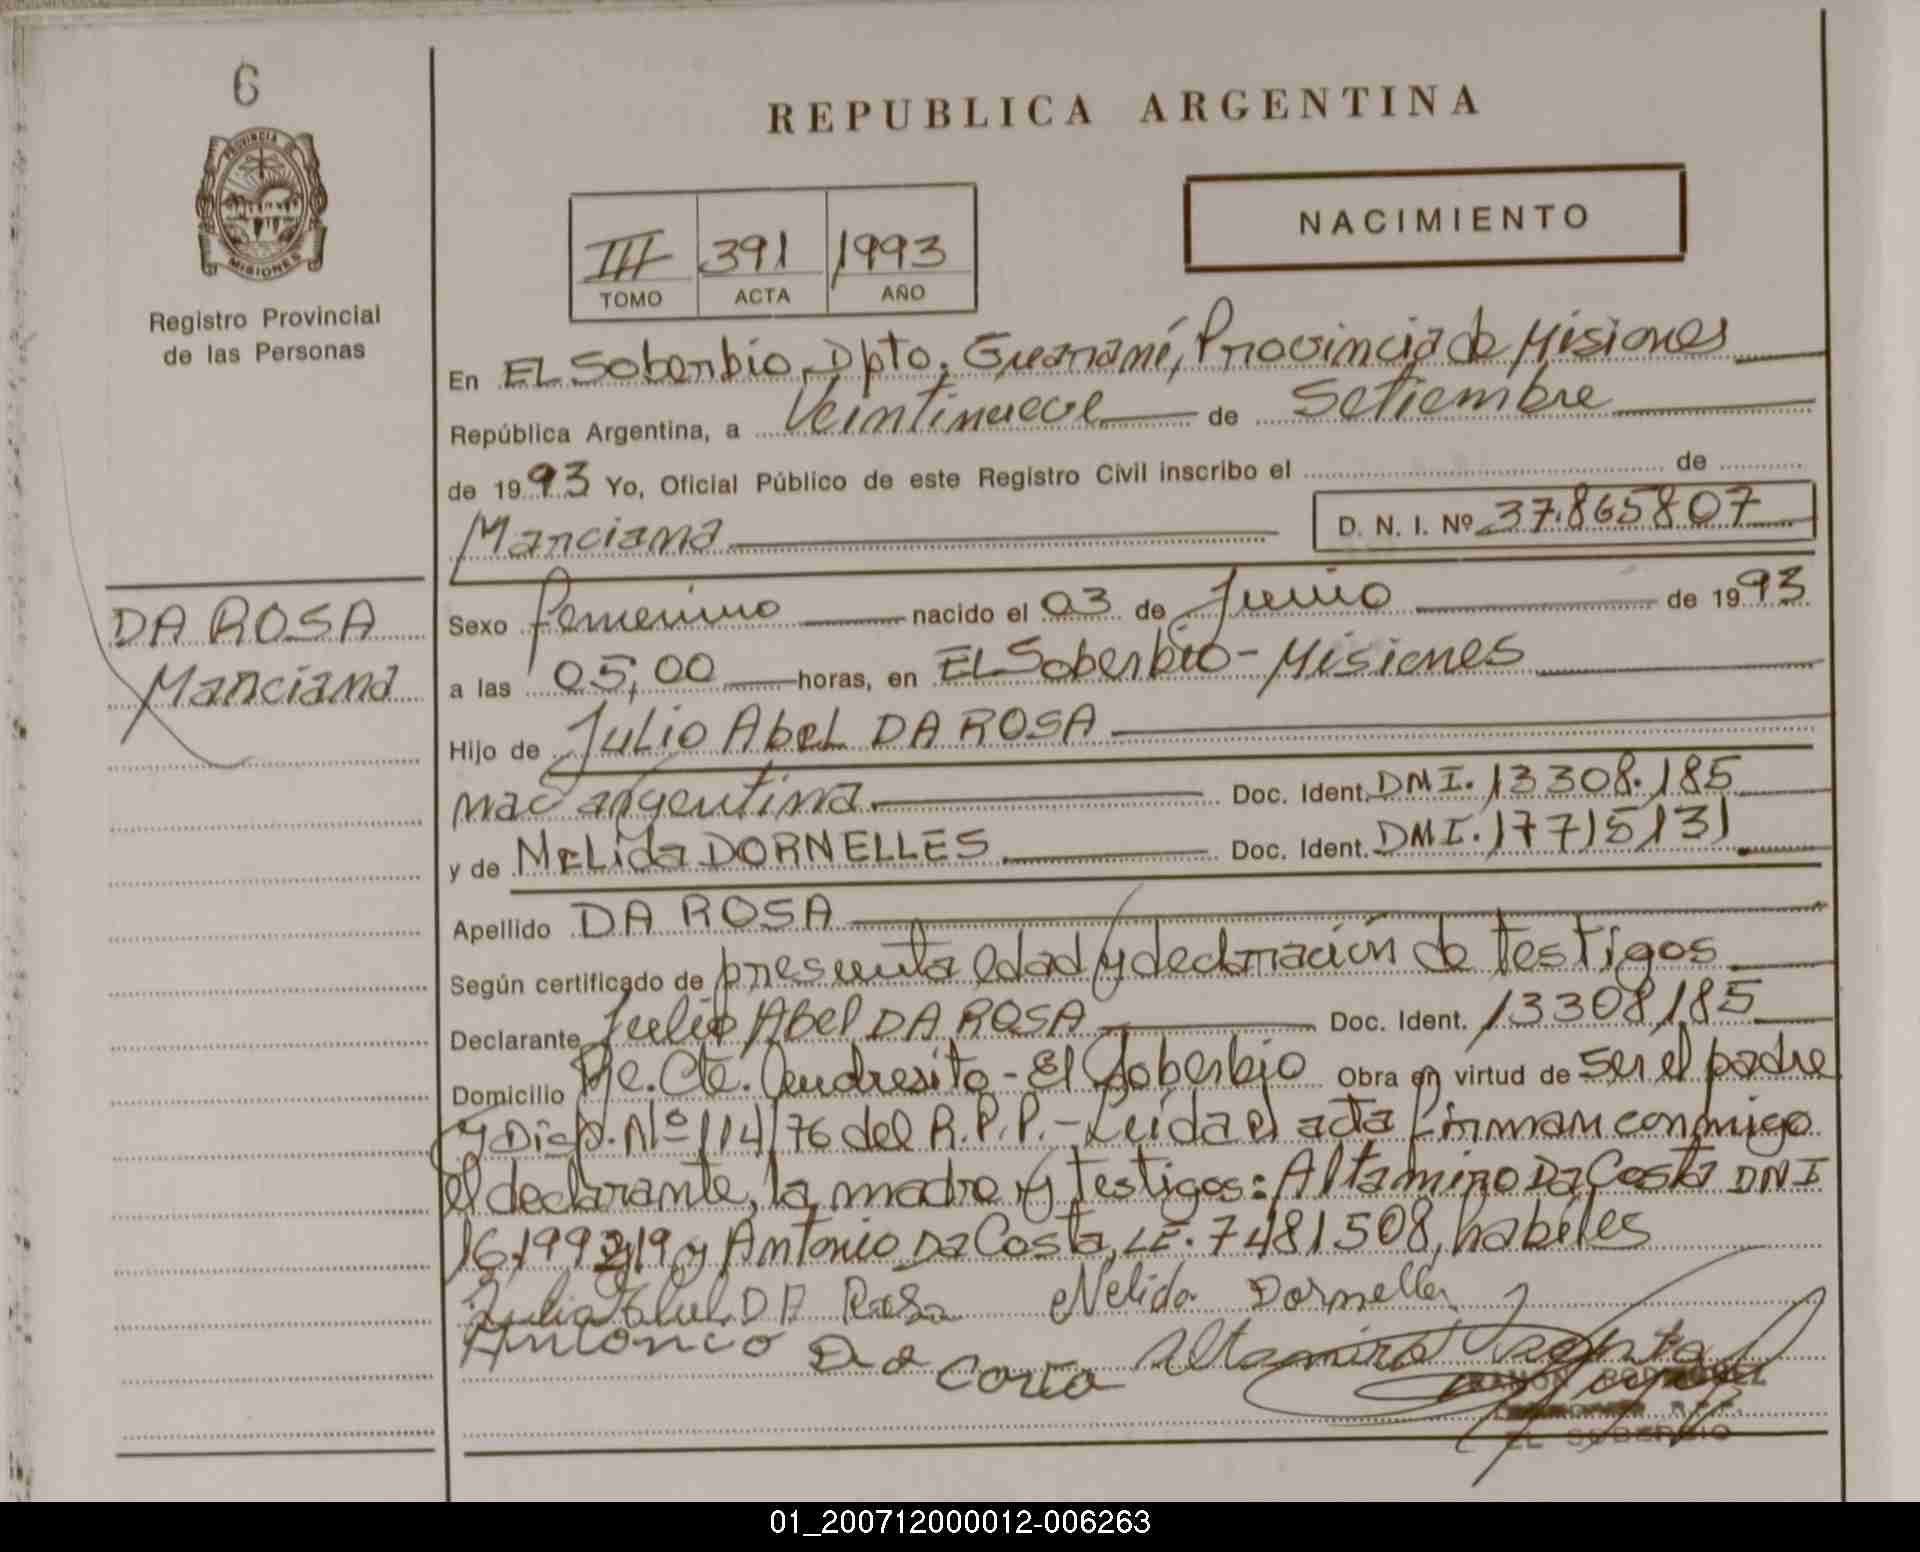 6
PROVINCIA D
MISIONES
Registro Provincial
de las Personas
REPUBLICA ARGENTINA
III 391 1993
TOMO ACTA AÑO
NACIMIENTO
En EL Soberbio, Dpto. Guaraní, Provincia de Misiones
República Argentina, a Veintinueve de Setiembre
de 1993 Yo, Oficial Público de este Registro Civil inscribo el de
Marciana D. N. I. Nº 37.865807
DA ROSA
Marciana
Sexo femenino nacido el 03 de Junio de 1993
a las 05,00 horas, en EL Soberbio - Misiones
Hijo de Julio Abel DA ROSA
nac argentina Doc. Ident. DNI. 13308.185
y de NELida DORNELLES Doc. Ident. DNI. 17715131
Apellido DA ROSA
Según certificado de presunta edad y declaración de testigos
Declarante Julio Abel DA ROSA Doc. Ident. 13308185
Domicilio Pje. Cte. Andresito - El Soberbio Obra en virtud de ser el padre
y Disp. Nº 114/76 del R.P.P. - Leída el acta firman conmigo
el declarante, la madre y testigos: Altamiro Da Costa DNI
y Antonio Da Costa, LE. 7481508, habiles
DA Rosa Nelida Dornelles
Antonio Da Costa Altamiro
RAMON RODRIGUEZ
R.P.P.
EL SOBERBIO
01_200712000012-006263